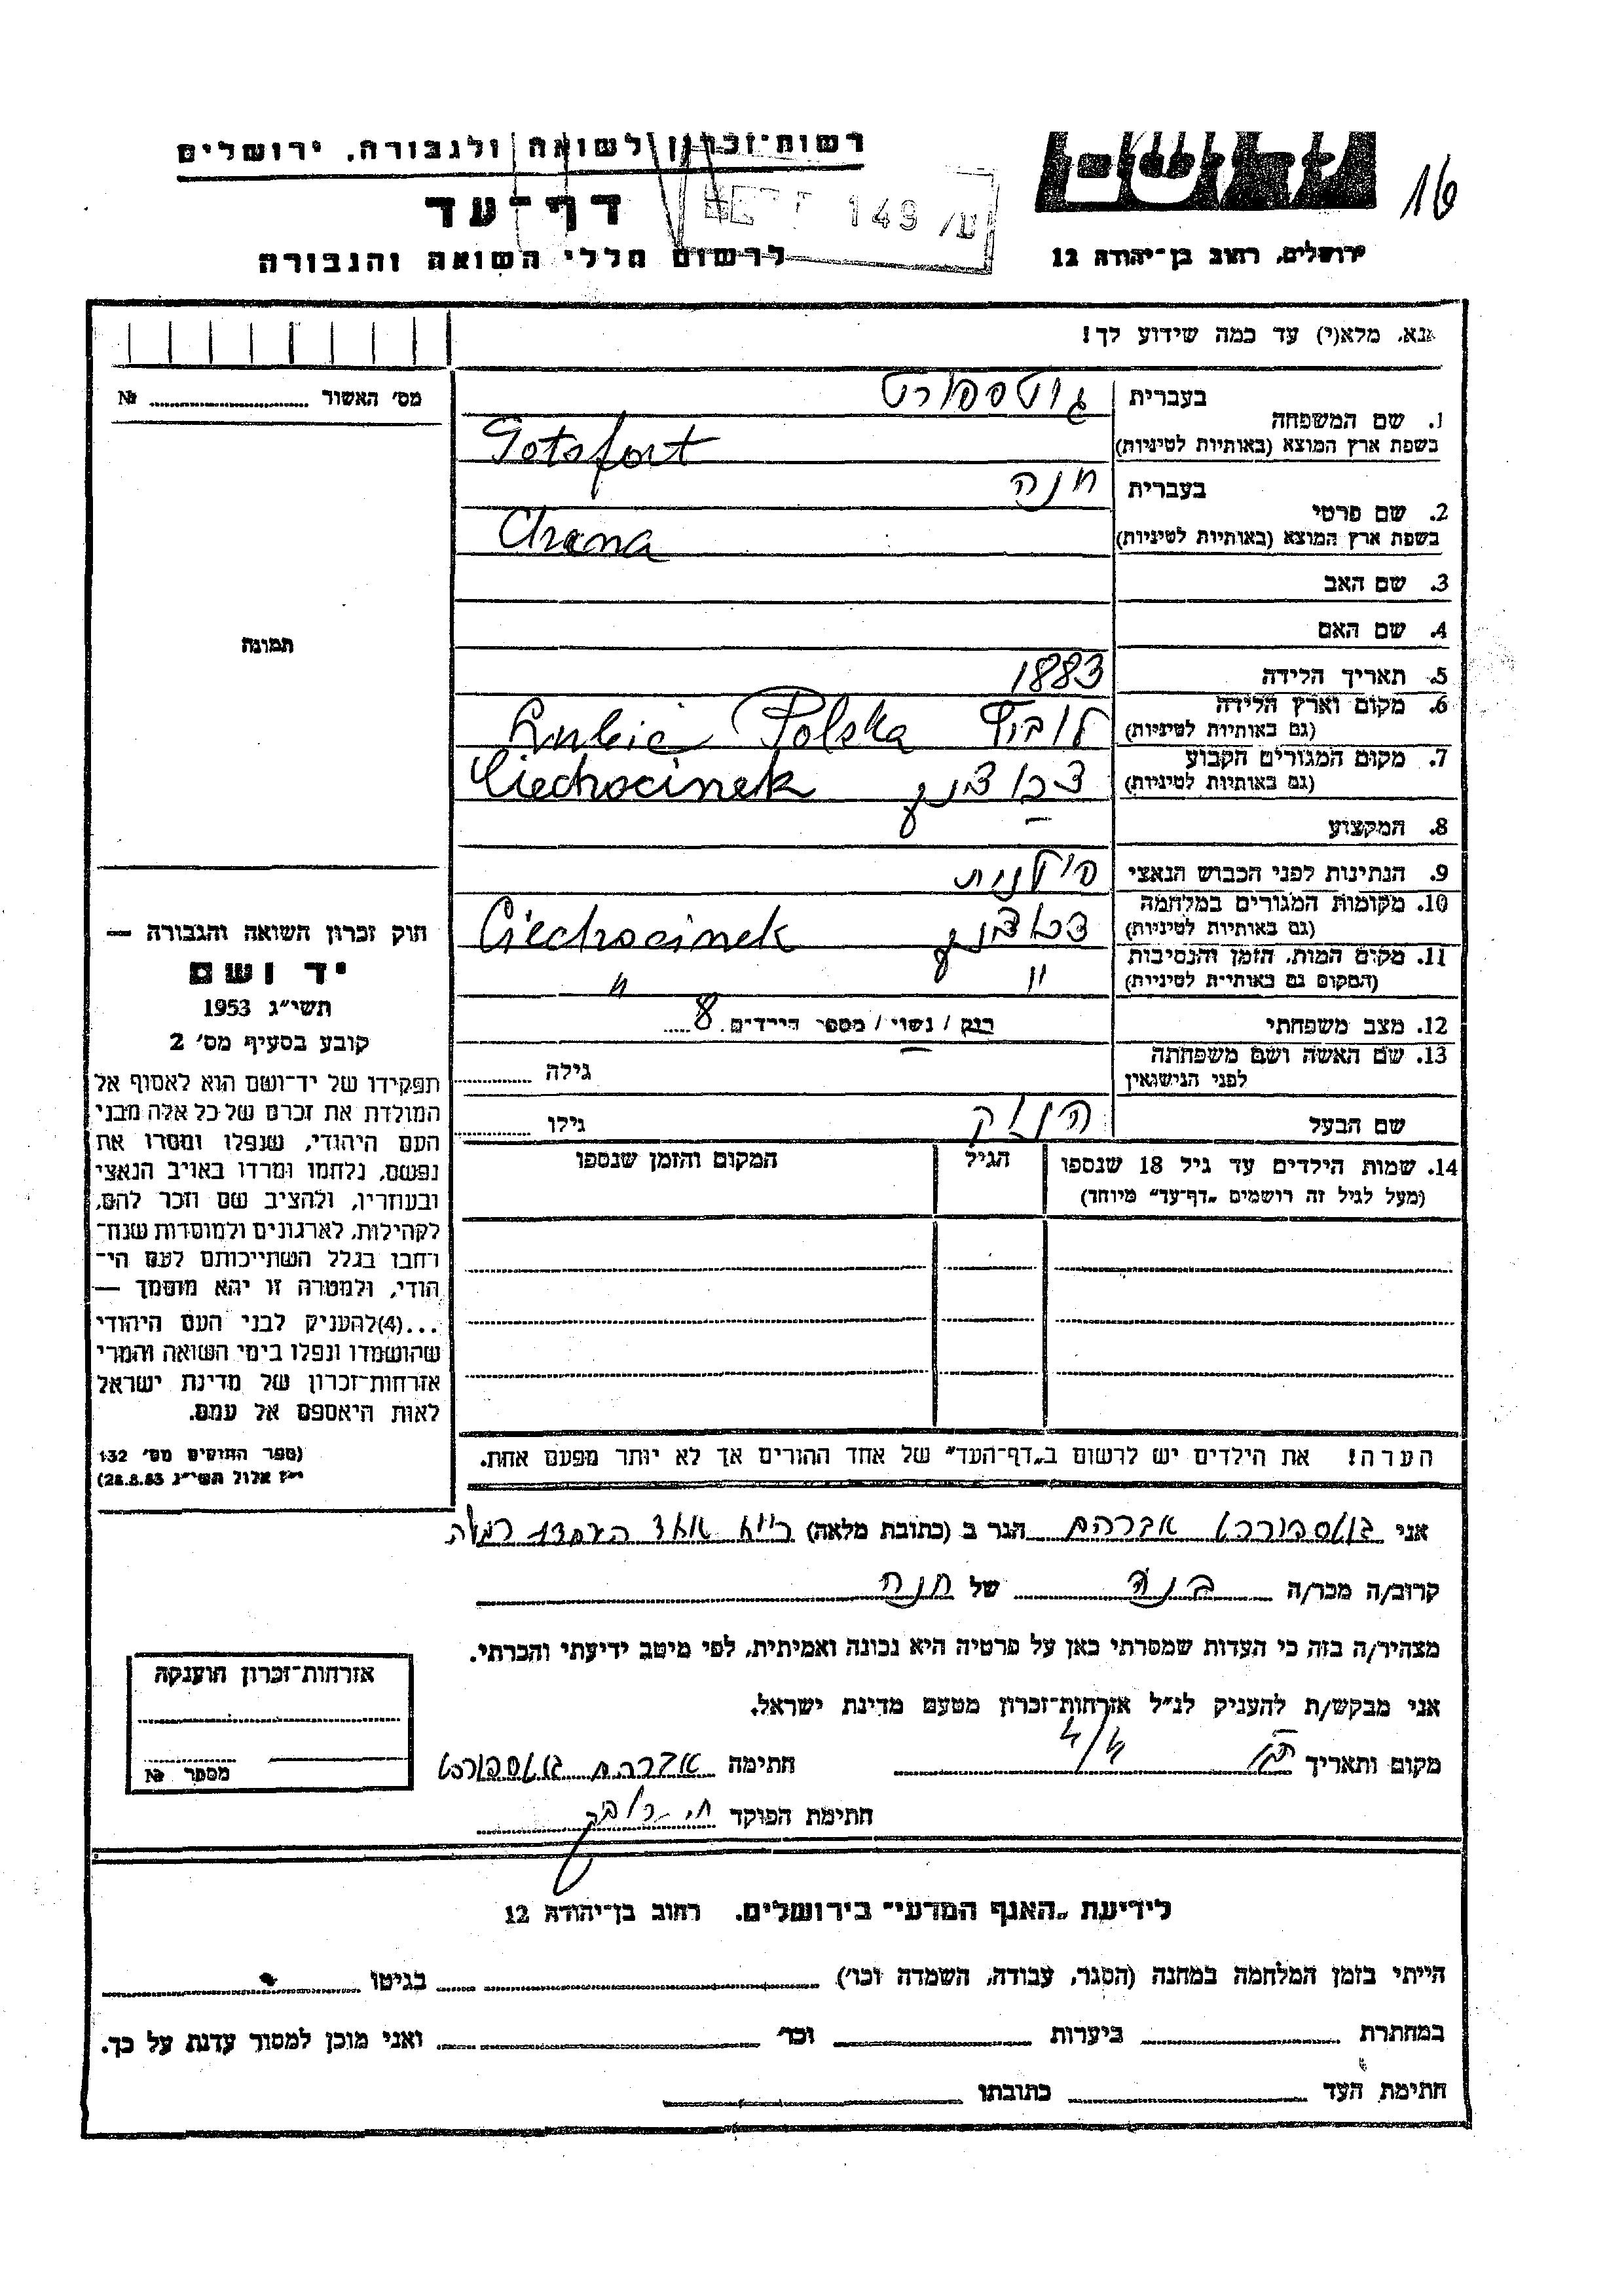 רשות־זכרון לשואה ולגבורה, ירושלים
16
149/ע
דף־עד
ירושלים, רחוב בן־יהודה 12
לרשום חללי השואה והגבורה
נא, מלא(י) עד כמה שידוע לך!
מס׳ האשור № ........
1. שם המשפחה
בעברית גוטספורט
בשפת ארץ המוצא (באותיות לטיניות) Gotsfort
2. שם פרטי
בעברית חנה
בשפת ארץ המוצא (באותיות לטיניות) Chana
3. שם האב
4. שם האם
תמונה
5. תאריך הלידה 1883
6. מקום וארץ הלידה
(גם באותיות לטיניות) Lubicz Polska
7. מקום המגורים הקבוע
(גם באותיות לטיניות) Ciechocinek
8. המקצוע —
9. הנתינות לפני הכבוש הנאצי פולנית
10. מקומות המגורים במלחמה
(גם באותיות לטיניות) Ciechocinek
11. מקום המות, הזמן והנסיבות
(המקום גם באותיות לטיניות) " "
12. מצב משפחתי רוק / נשוי / מספר הילדים 8
13. שם האשה ושם משפחתה
לפני הנישואין גילה ........
שם הבעל גילו ........
14. שמות הילדים עד גיל 18 שנספו הגיל המקום והזמן שנספו
(מעל לגיל זה רושמים „דף־עד” מיוחד)
הערה! את הילדים יש לרשום ב„דף־העד” של אחד ההורים אך לא יותר מפעם אחת.
חוק זכרון השואה והגבורה —
יד ושם
תשי״ג 1953
קובע בסעיף מס׳ 2
תפקידו של יד־ושם הוא לאסוף אל
המולדת את זכרם של כל אלה מבני
העם היהודי, שנפלו ומסרו את
נפשם, נלחמו ומרדו באויב הנאצי
ובעוזריו, ולהציב שם וזכר להם,
לקהילות, לארגונים ולמוסדות שנח־
רחבו בגלל השתייכותם לעם הי־
הודי, ולמטרה זו יהא מוסמך —
...(4)להעניק לבני העם היהודי
שהושמדו ונפלו בימי השואה והמרי
אזרחות־זכרון של מדינת ישראל
לאות היאספם אל עמם.
(ספר החוקים מס׳ 132
י״ז אלול תשי״ג 28.8.53)
אני גוטספורט אברהם הגר ב (כתובת מלאה)
קרוב/ה מכר/ה בנה של חנה
מצהיר/ה בזה כי העדות שמסרתי כאן על פרטיה היא נכונה ואמיתית, לפי מיטב ידיעתי והכרתי.
אני מבקש/ת להעניק לנ״ל אזרחות־זכרון מטעם מדינת ישראל.
מקום ותאריך 4/4 חתימה אברהם גוטספורט
חתימת הפוקד
אזרחות־זכרון הוענקה
מספר №
לידיעת „האגף המדעי” בירושלים. רחוב בן־יהודה 12
הייתי בזמן המלחמה במחנה (הסגר, עבודה, השמדה וכו׳) ........ בגיטו ........
במחתרת ........ ביערות ........ וכו׳ ........ ואני מוכן למסור עדות על כך.
חתימת העד ........ כתובתו ........